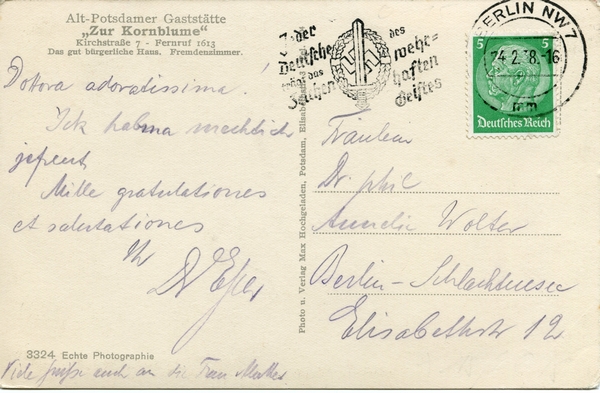 Alt-Potsdamer Gaststätte
„Zur Kornblume"
Kirchstraße 7 - Fernruf 1613
Das gut bürgerliche Haus. Fremdenzimmer.
Dottora adoratissima!
Ick habma mechtich
jefreut
Mille gratulationes
et salutationes
Ihr
Viele Grüße auch an die Frau Mutter
3324 Echte Photographie
Photo u. Verlag Max Hochgeladen, Potsdam, Elisabeth
Jeder Deutsche trägt das Zeichen
des wehrhaften Geistes
BERLIN NW7
24.2.38.16
5 5
Deutsches Reich
Fräulein
Dr. phil
Amelie Wolter
Berlin-Schlachtensee
Elisabethstr 12